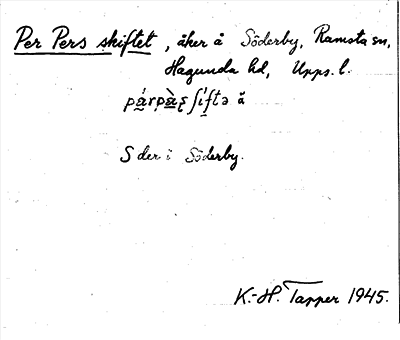 Per Pers skiftet, åker å Söderby, Ramsta sn,
Hagunda hd, Upps. l.
S der i Söderby.
K.-H. Tapper 1945.